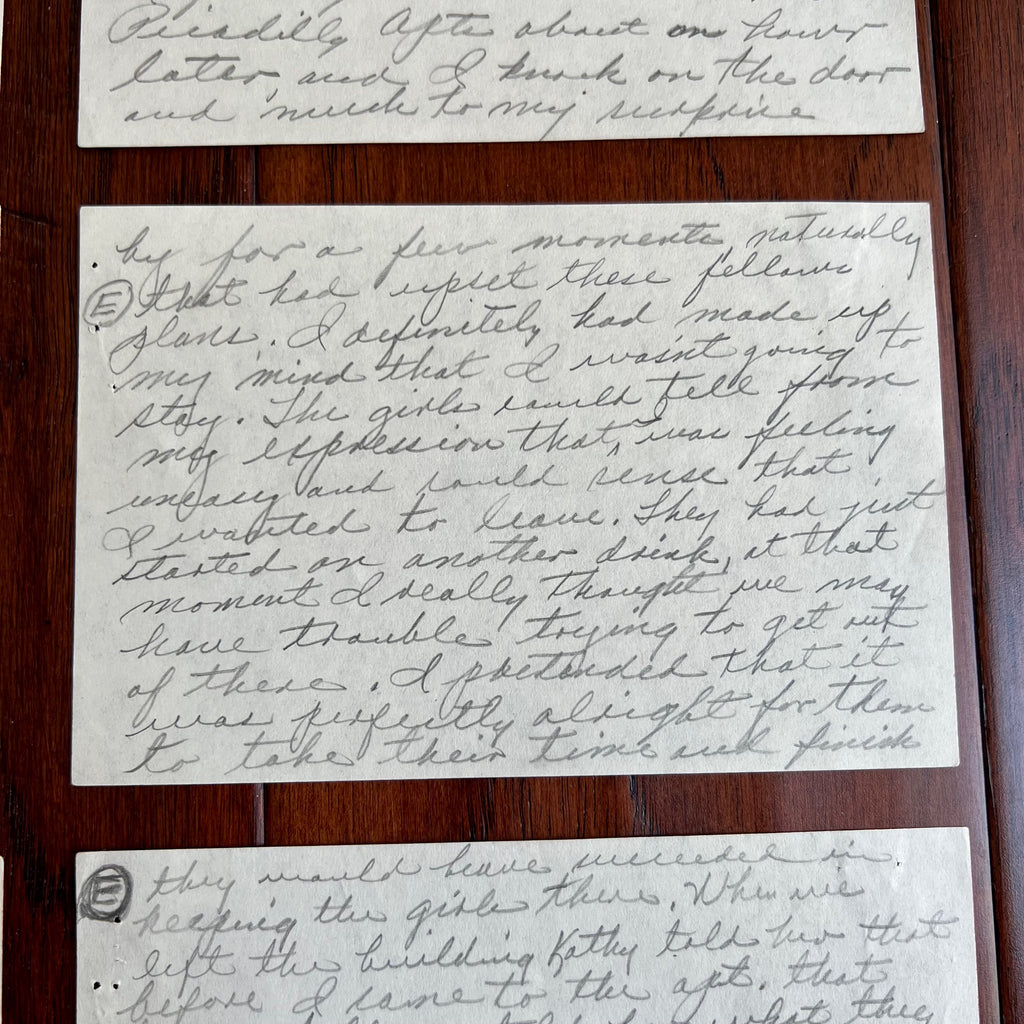 Picadilly After about an hour
later, and I knock on the door
and much to my surprise
by for a few moments, naturally
Ⓔ that had upset these fellows
plans. I definitely had made up
my mind that I wasn't going to
stay. The girls could tell from
my expression that, was feeling
uneasy and could sense that
I wanted to leave. They had just
started on another drink, at that
moment I really thought we may
have trouble trying to get out
of there. I pretended that it
was perfectly alright for them
to take their time and finish
Ⓔ they would have succeeded in
keeping the girls there. When we
left the building Kathy told her that
before I came to the apt. that
what they